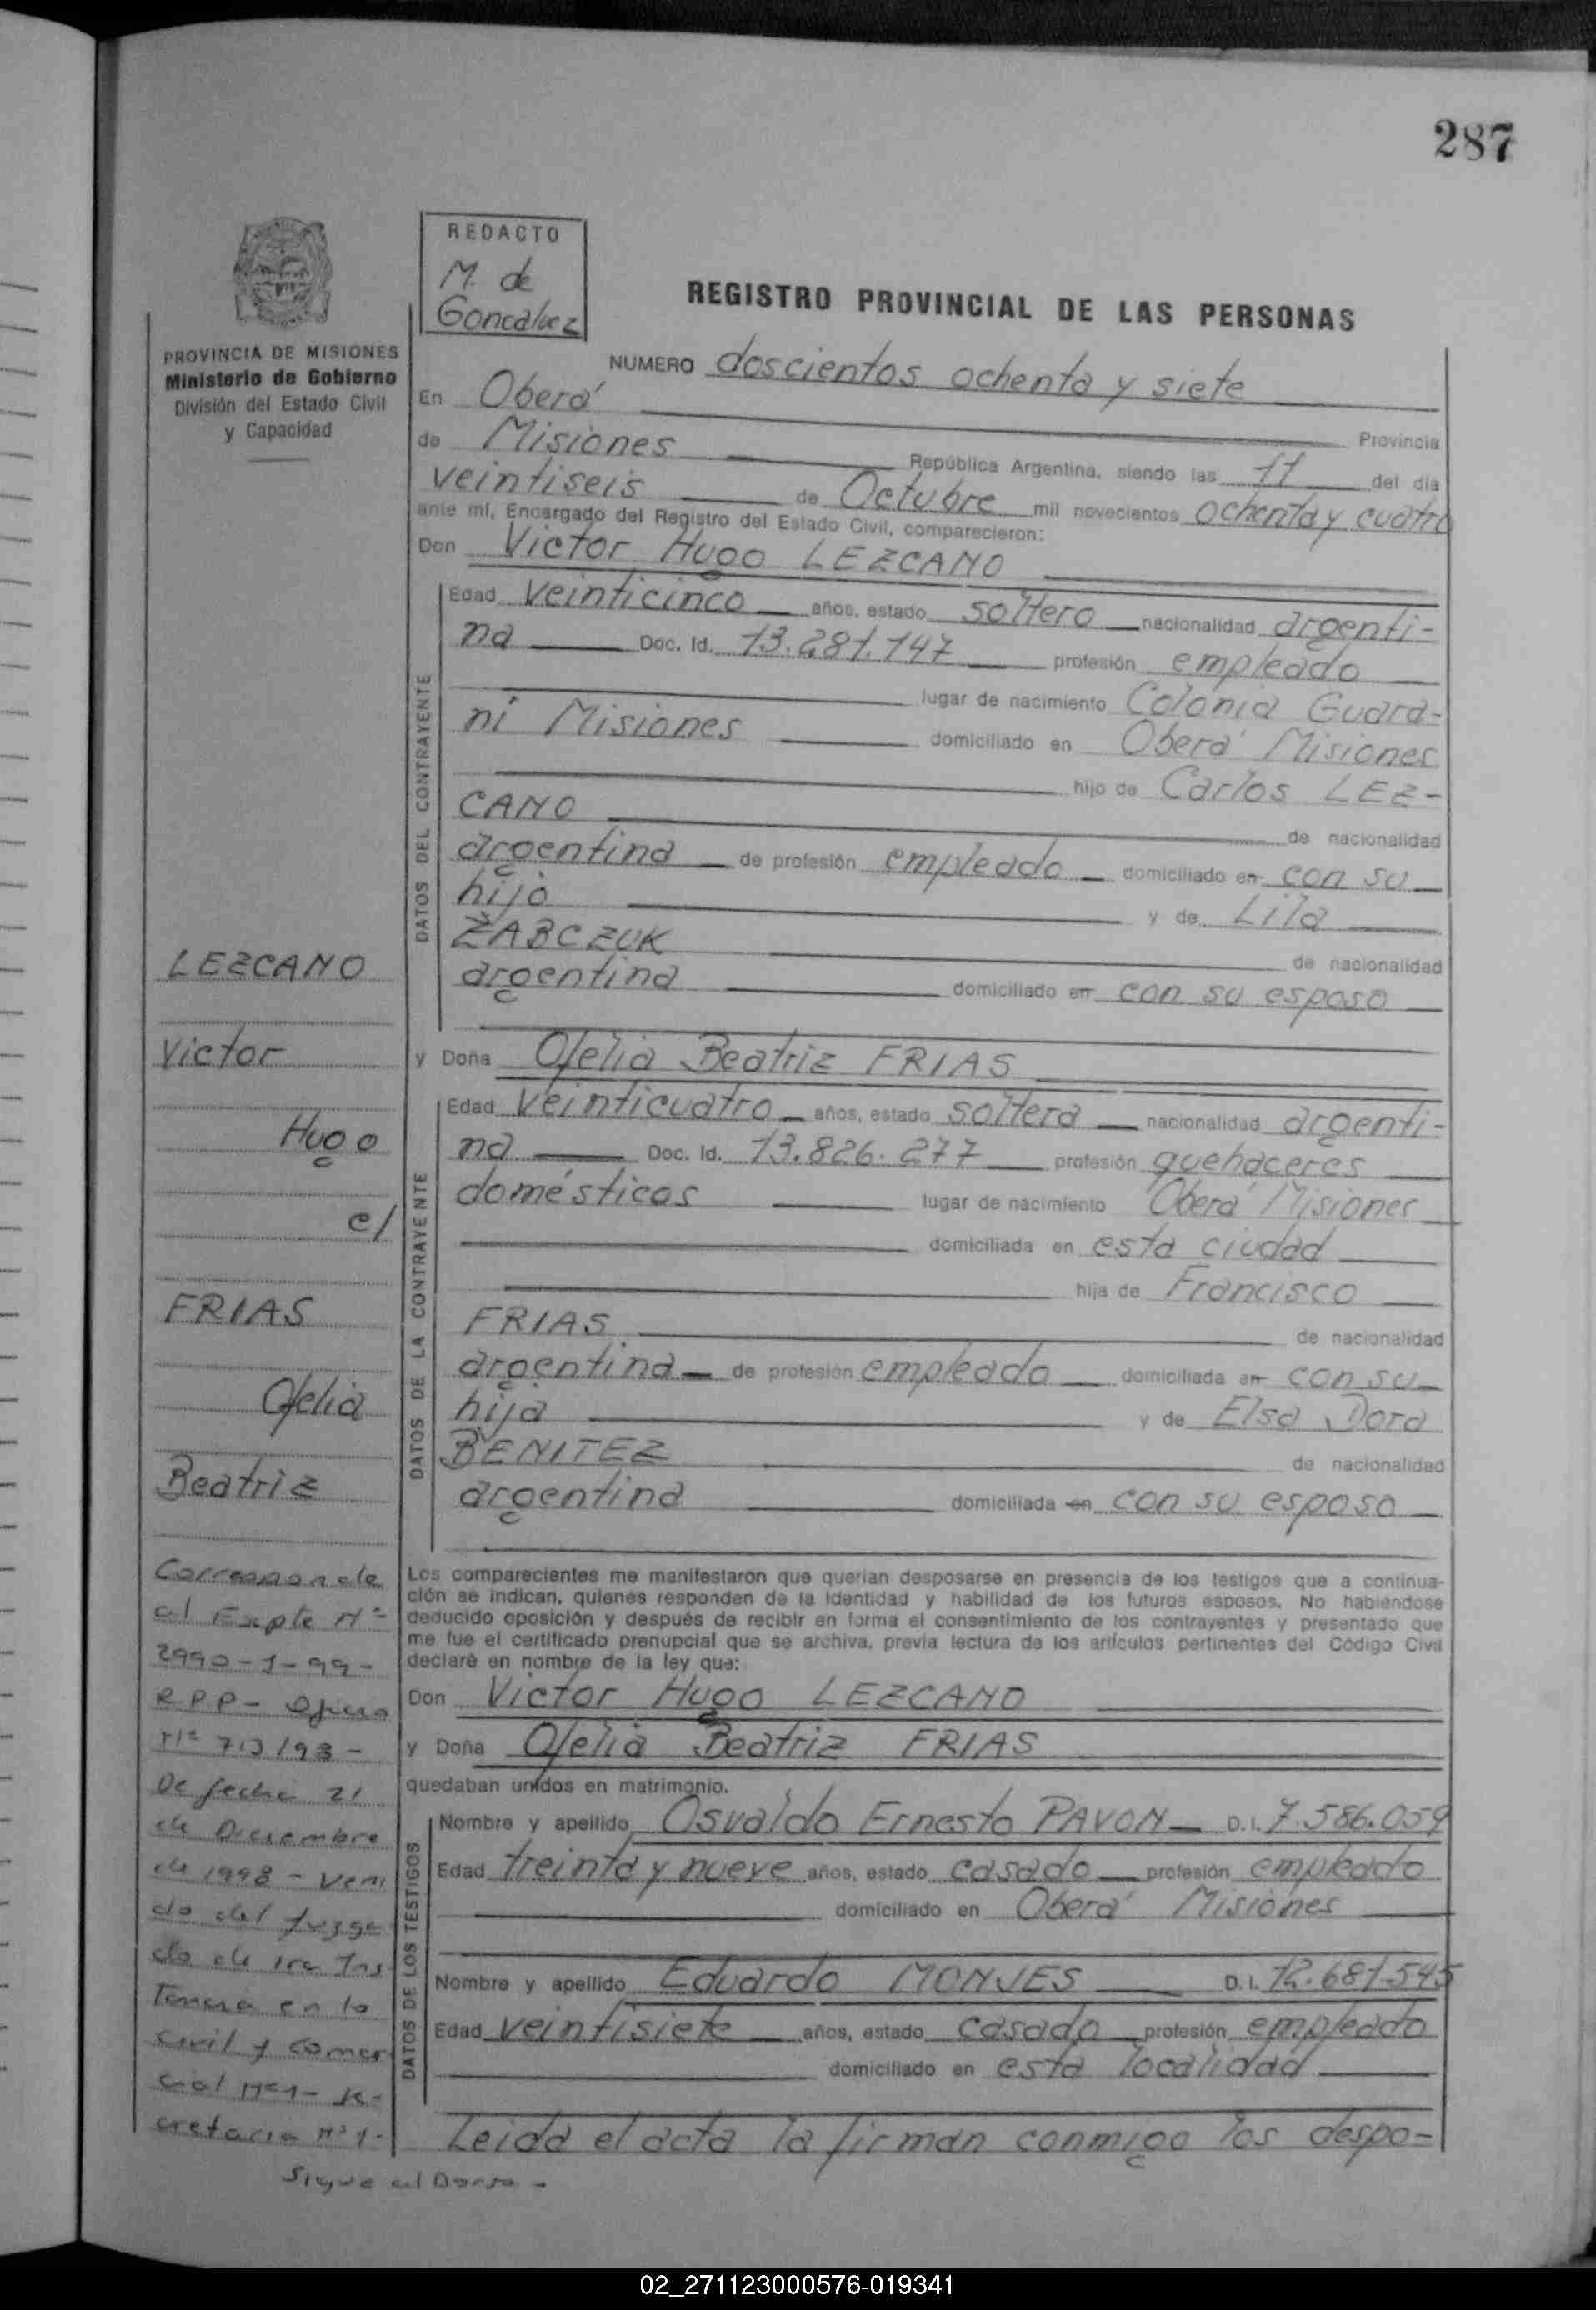 287
REDACTO
M. de
Goncalvez
REGISTRO PROVINCIAL DE LAS PERSONAS
PROVINCIA DE MISIONES
Ministerio de Gobierno
División del Estado Civil
y Capacidad
NUMERO doscientos ochenta y siete
En Oberá
Provincia
de Misiones República Argentina, siendo las 11 del día
veintiseis de Octubre mil novecientos ochenta y cuatro
ante mí, Encargado del Registro del Estado Civil, comparecieron:
Don Victor Hugo LEZCANO
DATOS DEL CONTRAYENTE
Edad veinticinco años, estado soltero nacionalidad argenti-
na Doc. Id. 13.281.147 profesión empleado
lugar de nacimiento Colonia Guara-
ní Misiones domiciliado en Oberá Misiones
hijo de Carlos LEZ-
CANO de nacionalidad
argentina de profesión empleado domiciliado en con su
hijo y de Lila
ZABCZUK de nacionalidad
argentina domiciliado en con su esposo
y Doña Ofelia Beatriz FRIAS
DATOS DE LA CONTRAYENTE
Edad veinticuatro años, estado soltera nacionalidad argenti-
na Doc. Id. 13.826.277 profesión quehaceres
domésticos lugar de nacimiento Oberá Misiones
domiciliada en esta ciudad
hija de Francisco
FRIAS de nacionalidad
argentina de profesión empleado domiciliada en con su
hija y de Elsa Dora
BENITEZ de nacionalidad
argentina domiciliada en con su esposo
Los comparecientes me manifestaron que querían desposarse en presencia de los testigos que a continua-
ción se indican, quienes responden de la identidad y habilidad de los futuros esposos. No habiéndose
deducido oposición y después de recibir en forma el consentimiento de los contrayentes y presentado que
me fue el certificado prenupcial que se archiva, previa lectura de los artículos pertinentes del Código Civil
declaré en nombre de la ley que:
Don Victor Hugo LEZCANO
y Doña Ofelia Beatriz FRIAS
quedaban unidos en matrimonio.
DATOS DE LOS TESTIGOS
Nombre y apellido Osvaldo Ernesto PAVON D.I. 7.586.059
Edad treinta y nueve años, estado casado profesión empleado
domiciliado en Oberá Misiones
Nombre y apellido Eduardo MONJES D.I. 12.681.545
Edad veintisiete años, estado casado profesión empleado
domiciliado en esta localidad
Leida el acta la firman conmigo los despo-
LEZCANO
Victor
Hugo
c/
FRIAS
Ofelia
Beatriz
Corresponde
al Expte Nº
2990-1-99-
RPP- Oficio
Nº 713/98-
De fecha 21
de Diciembre
de 1998 - Veni
do del Juzga
do de 1ra Ins
tancia en lo
Civil y Comer
cial Nº1- Se-
cretaria Nº1-
Sigue al Dorso -
02_271123000576-019341